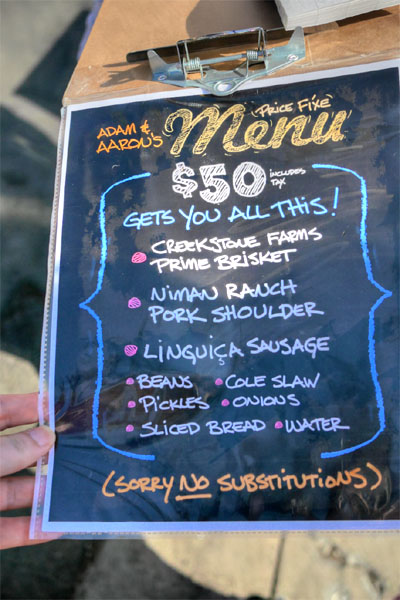 ADAM &
AARON'S
PRICE FIXE
Menu
$50 INCLUDES TAX
GETS YOU ALL THIS!
CREEKSTONE FARMS
PRIME BRISKET
NIMAN RANCH
PORK SHOULDER
LINGUIÇA SAUSAGE
BEANS COLE SLAW
PICKLES ONIONS
SLICED BREAD WATER
(SORRY NO SUBSTITUTIONS)